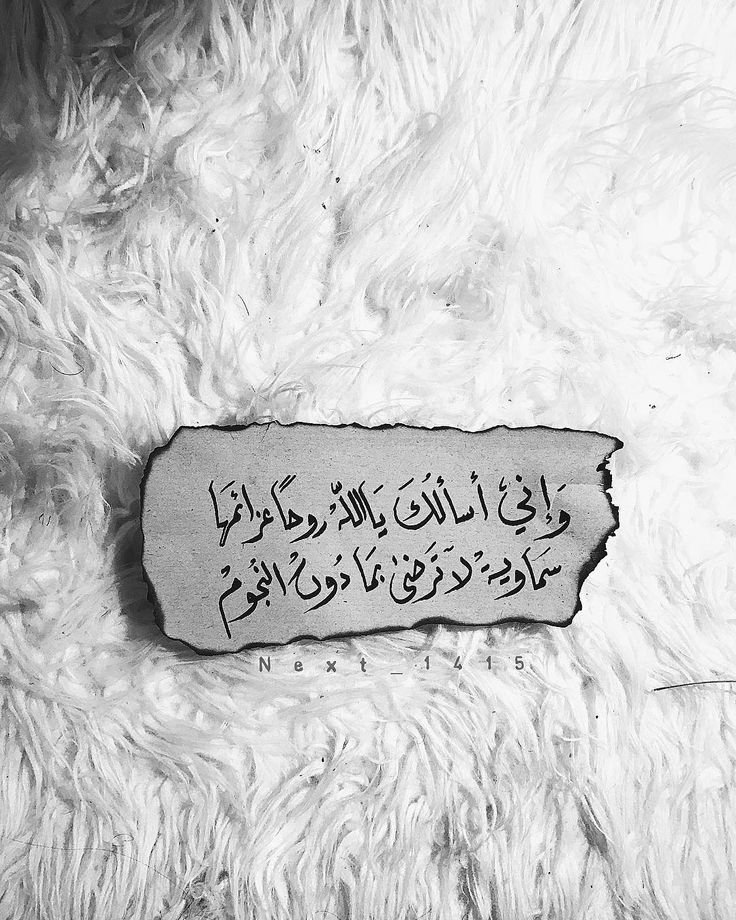 وَإِنيْ أسألُكَ يَااللّهْ روحاً عزائمَها
سَماويةْ لآتَرضىْ بمَادُونْ النجُومْ
Next_1415